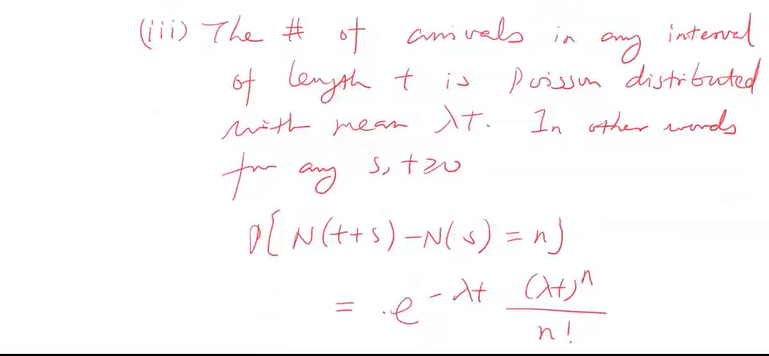 (iii) The # of arrivals in any interval
of length t is Poisson distributed
with mean λt. In other words
for any s, t≥0
P{N(t+s)-N(s) = n}
= e^{-λt} (λt)^n / n!